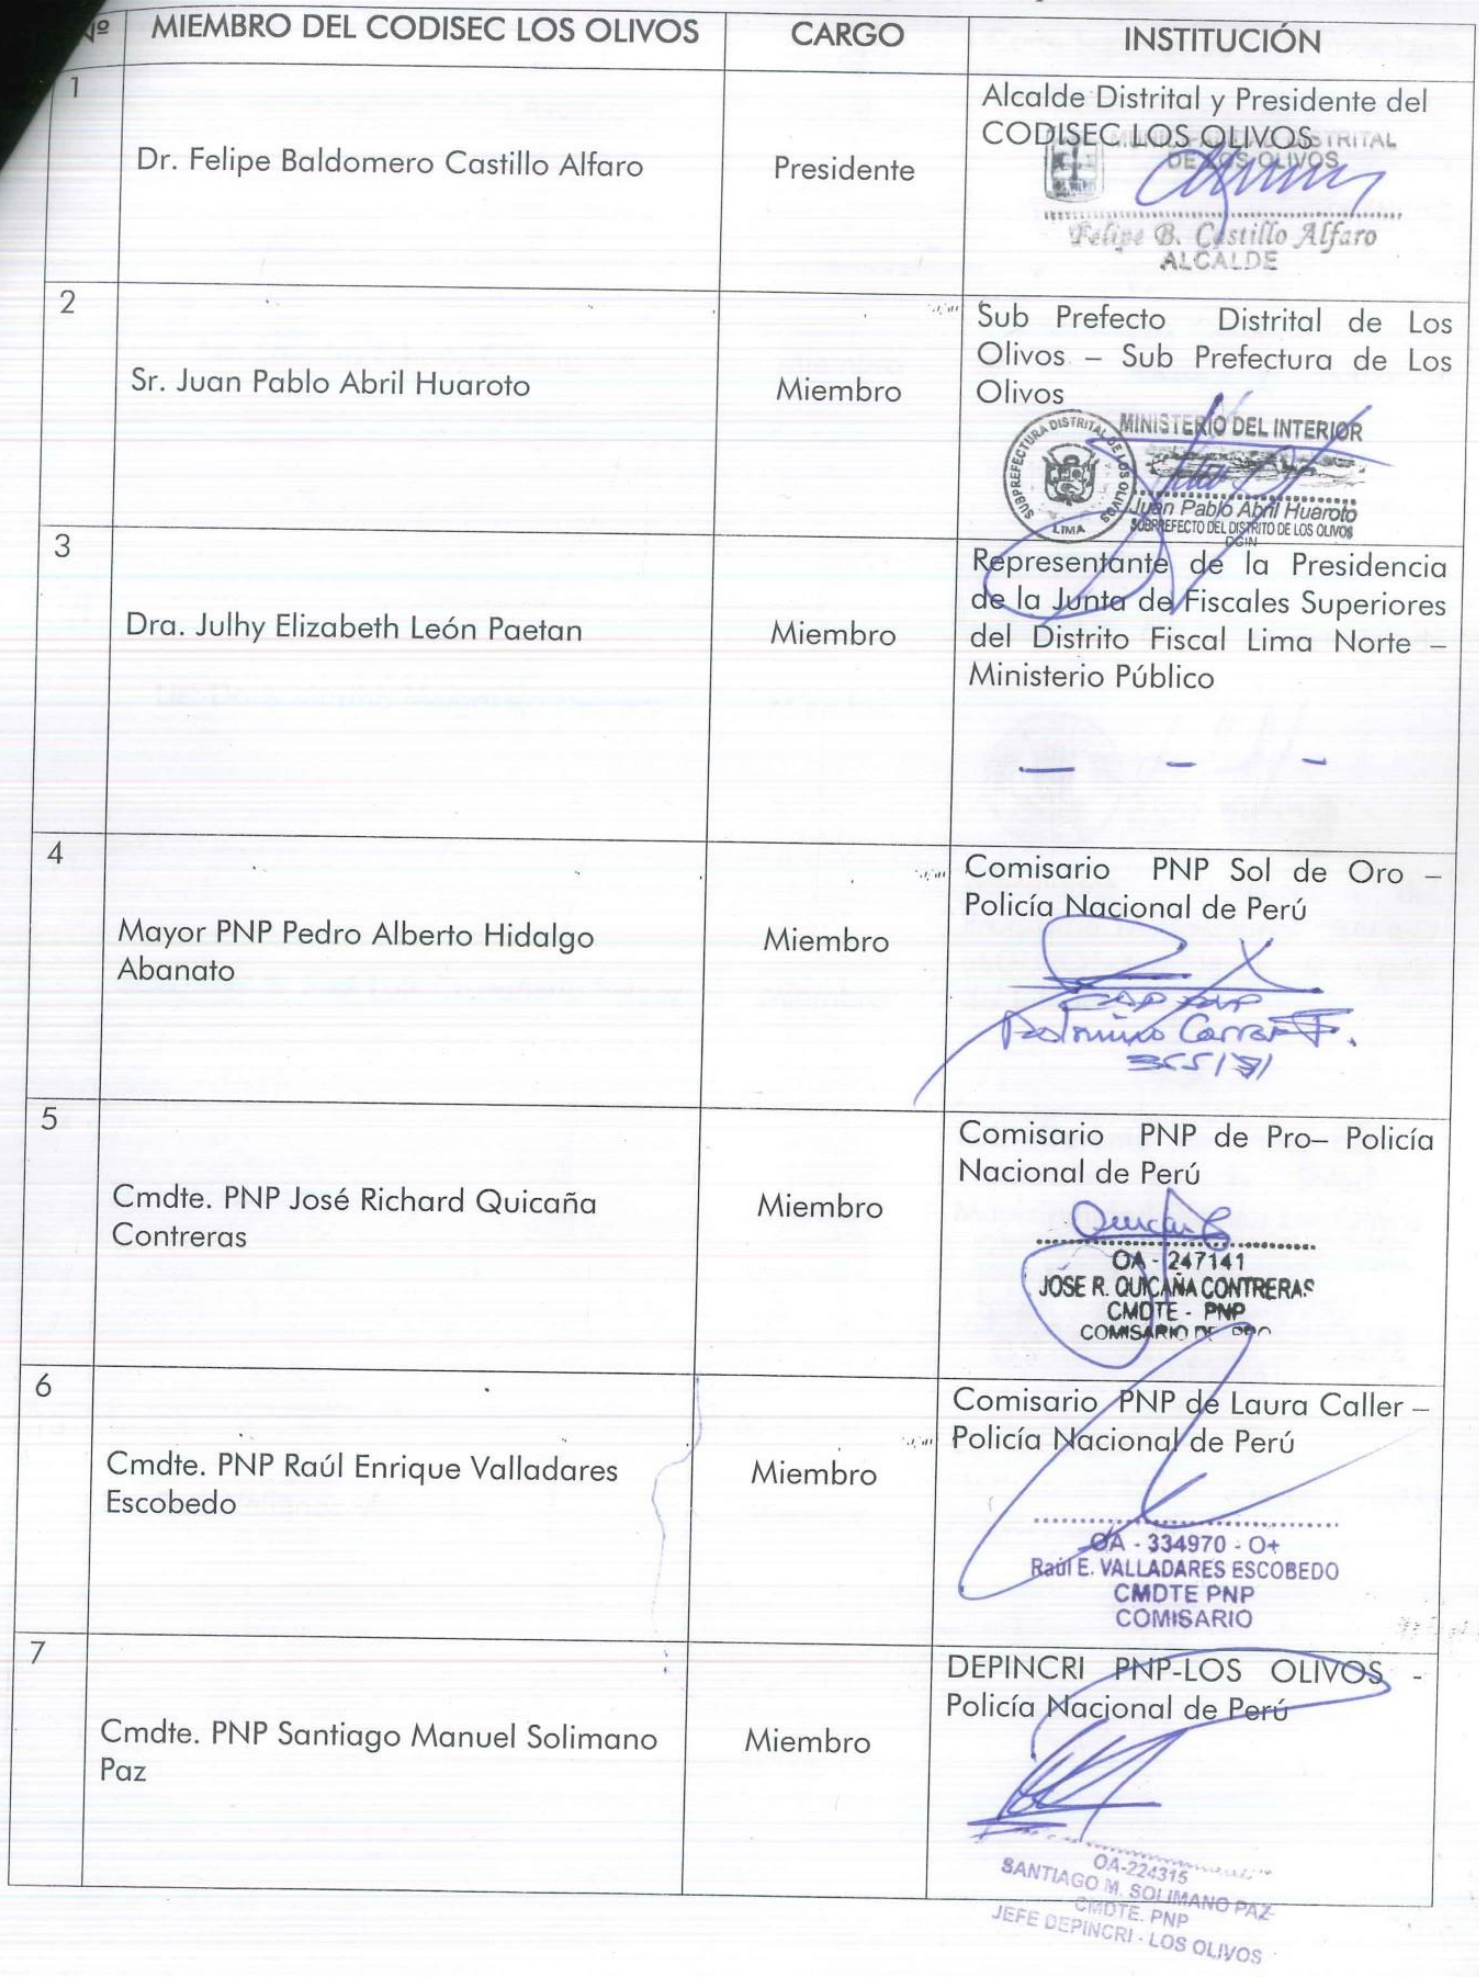 Nº MIEMBRO DEL CODISEC LOS OLIVOS CARGO INSTITUCIÓN
1
Dr. Felipe Baldomero Castillo Alfaro
Presidente
Alcalde Distrital y Presidente del
CODISEC LOS OLIVOS
MUNICIPALIDAD DISTRITAL
DE LOS OLIVOS
Felipe B. Castillo Alfaro
ALCALDE
2
Sr. Juan Pablo Abril Huaroto
Miembro
Sub Prefecto Distrital de Los
Olivos – Sub Prefectura de Los
Olivos
SUBPREFECTURA DISTRITAL DE LOS OLIVOS
LIMA
MINISTERIO DEL INTERIOR
Juan Pablo Abril Huaroto
SUBPREFECTO DEL DISTRITO DE LOS OLIVOS
DGIN
3
Dra. Julhy Elizabeth León Paetan
Miembro
Representante de la Presidencia
de la Junta de Fiscales Superiores
del Distrito Fiscal Lima Norte –
Ministerio Público
4
Mayor PNP Pedro Alberto Hidalgo
Abanato
Miembro
Comisario PNP Sol de Oro –
Policía Nacional de Perú
CAP PNP
5
Cmdte. PNP José Richard Quicaña
Contreras
Miembro
Comisario PNP de Pro– Policía
Nacional de Perú
OA - 247141
JOSE R. QUICAÑA CONTRERAS
CMDTE - PNP
COMISARIO DE PRO
6
Cmdte. PNP Raúl Enrique Valladares
Escobedo
Miembro
Comisario PNP de Laura Caller –
Policía Nacional de Perú
OA - 334970 - O+
Raúl E. VALLADARES ESCOBEDO
CMDTE PNP
COMISARIO
7
Cmdte. PNP Santiago Manuel Solimano
Paz
Miembro
DEPINCRI PNP-LOS OLIVOS -
Policía Nacional de Perú
OA-224315
SANTIAGO M. SOLIMANO PAZ
CMDTE. PNP
JEFE DEPINCRI - LOS OLIVOS